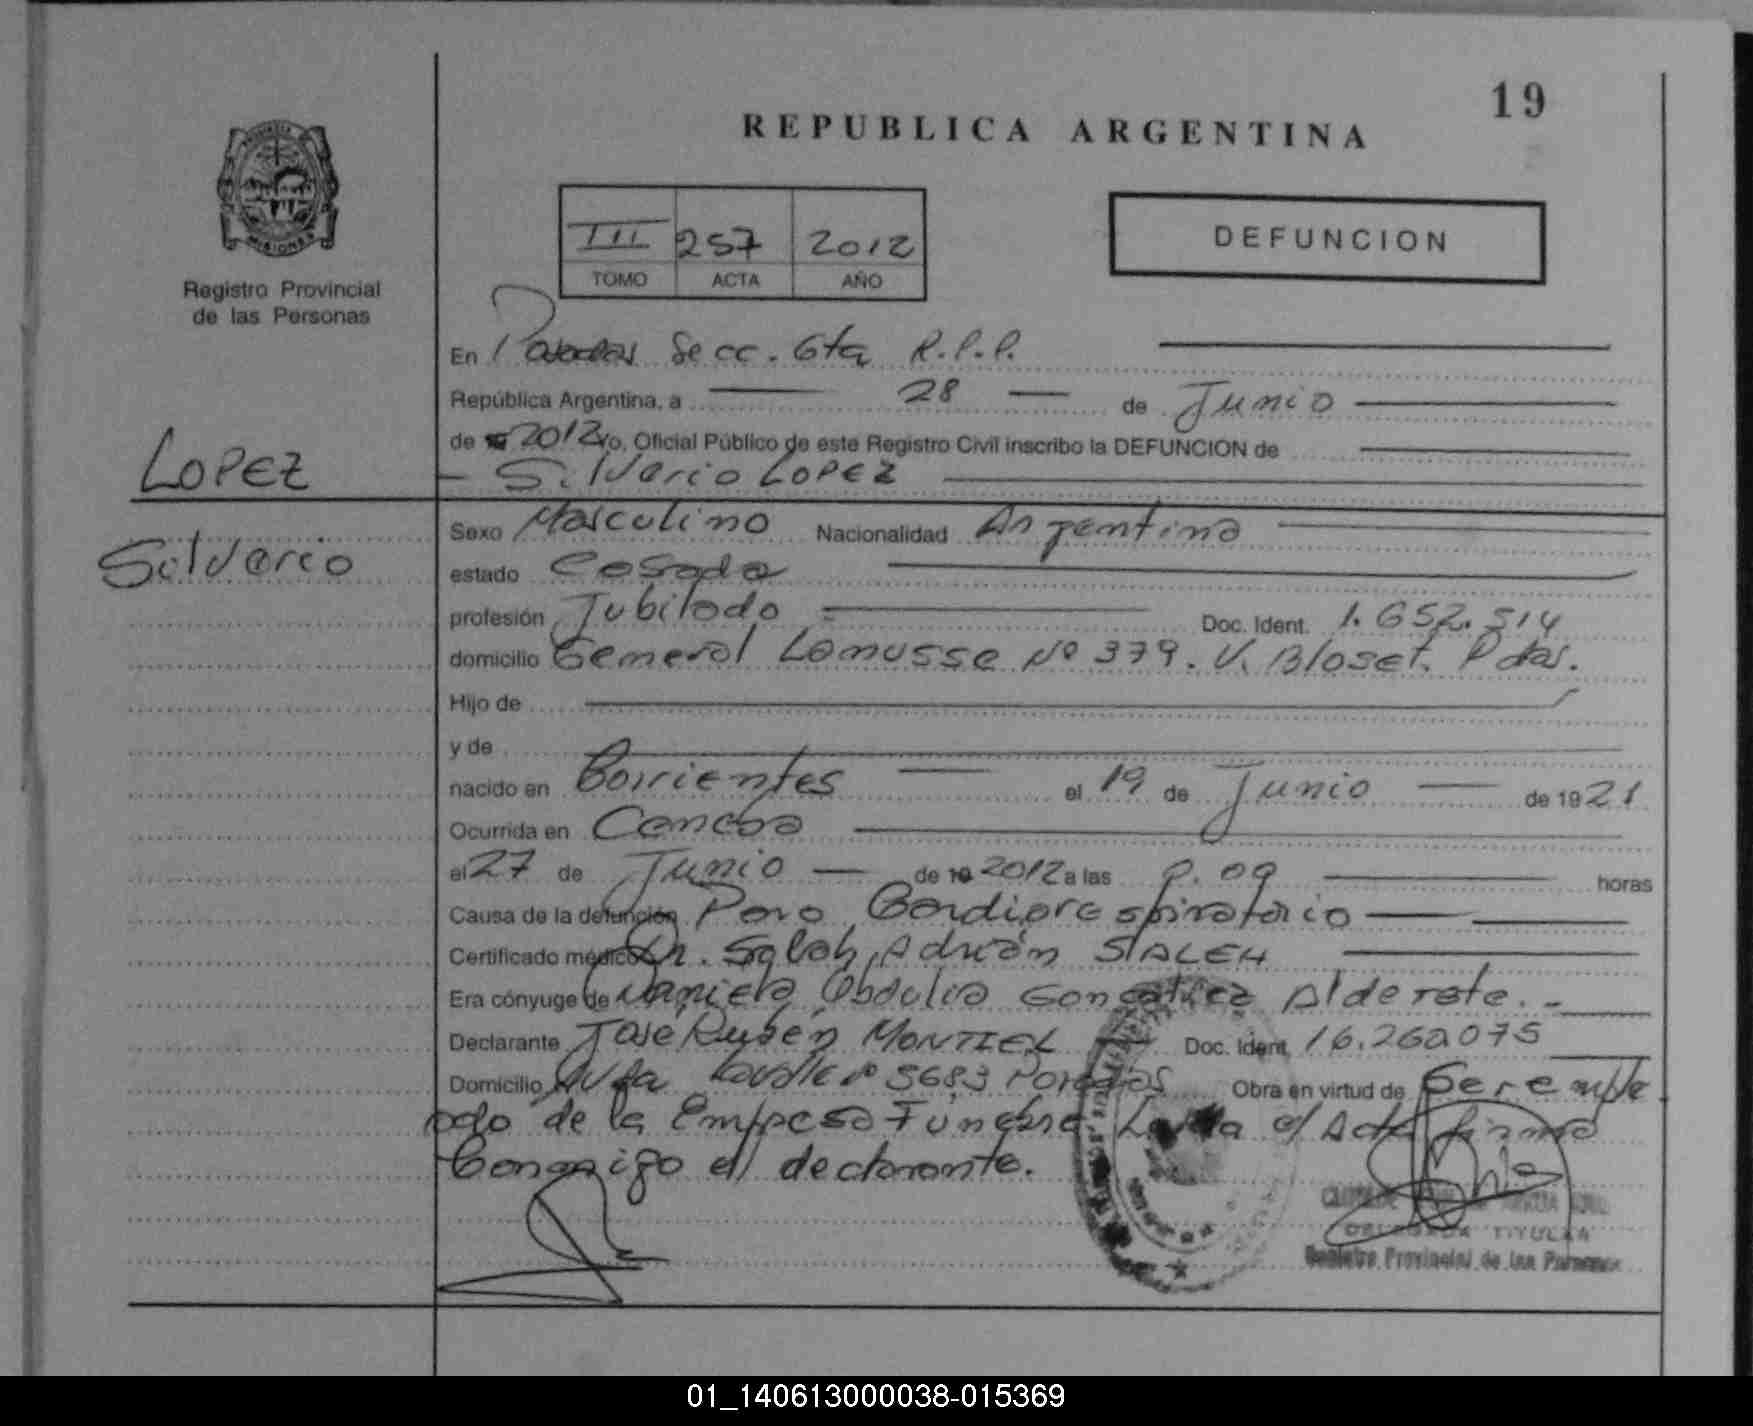 19
REPUBLICA ARGENTINA
PROVINCIA
MISIONES
Registro Provincial
de las Personas
III 257 2012
TOMO ACTA AÑO
DEFUNCION
En Posadas Secc. 6ta R.P.P.
República Argentina, a 28 de Junio
de 2012 Yo, Oficial Público de este Registro Civil inscribo la DEFUNCION de
LOPEZ
Silverio LOPEZ
Silverio
Sexo Masculino Nacionalidad Argentina
estado Casado
profesión Jubilado Doc. Ident. 1.652.514
domicilio General Lanusse Nº 379. V. Bloset. Pdas.
Hijo de
y de
nacido en Corrientes el 19 de Junio de 1921
Ocurrida en
el 27 de Junio de 19 2012 a las 0.09 horas
Causa de la defunción Paro Cardiorespiratorio
Certificado médico Dr. Adrián SALEH
Era cónyuge de Obdulia Gonzalez Alderete.
Declarante José Rubén MONTIEL Doc. Ident. 16.260.075
Domicilio Avda nº 5683 Posadas Obra en virtud de Ser emple
ado de la Empresa Fúnebre d/ Acta firma
Conmigo el declarante.
DELEGADA TITULAR
Registro Provincial de las Personas
01_140613000038-015369